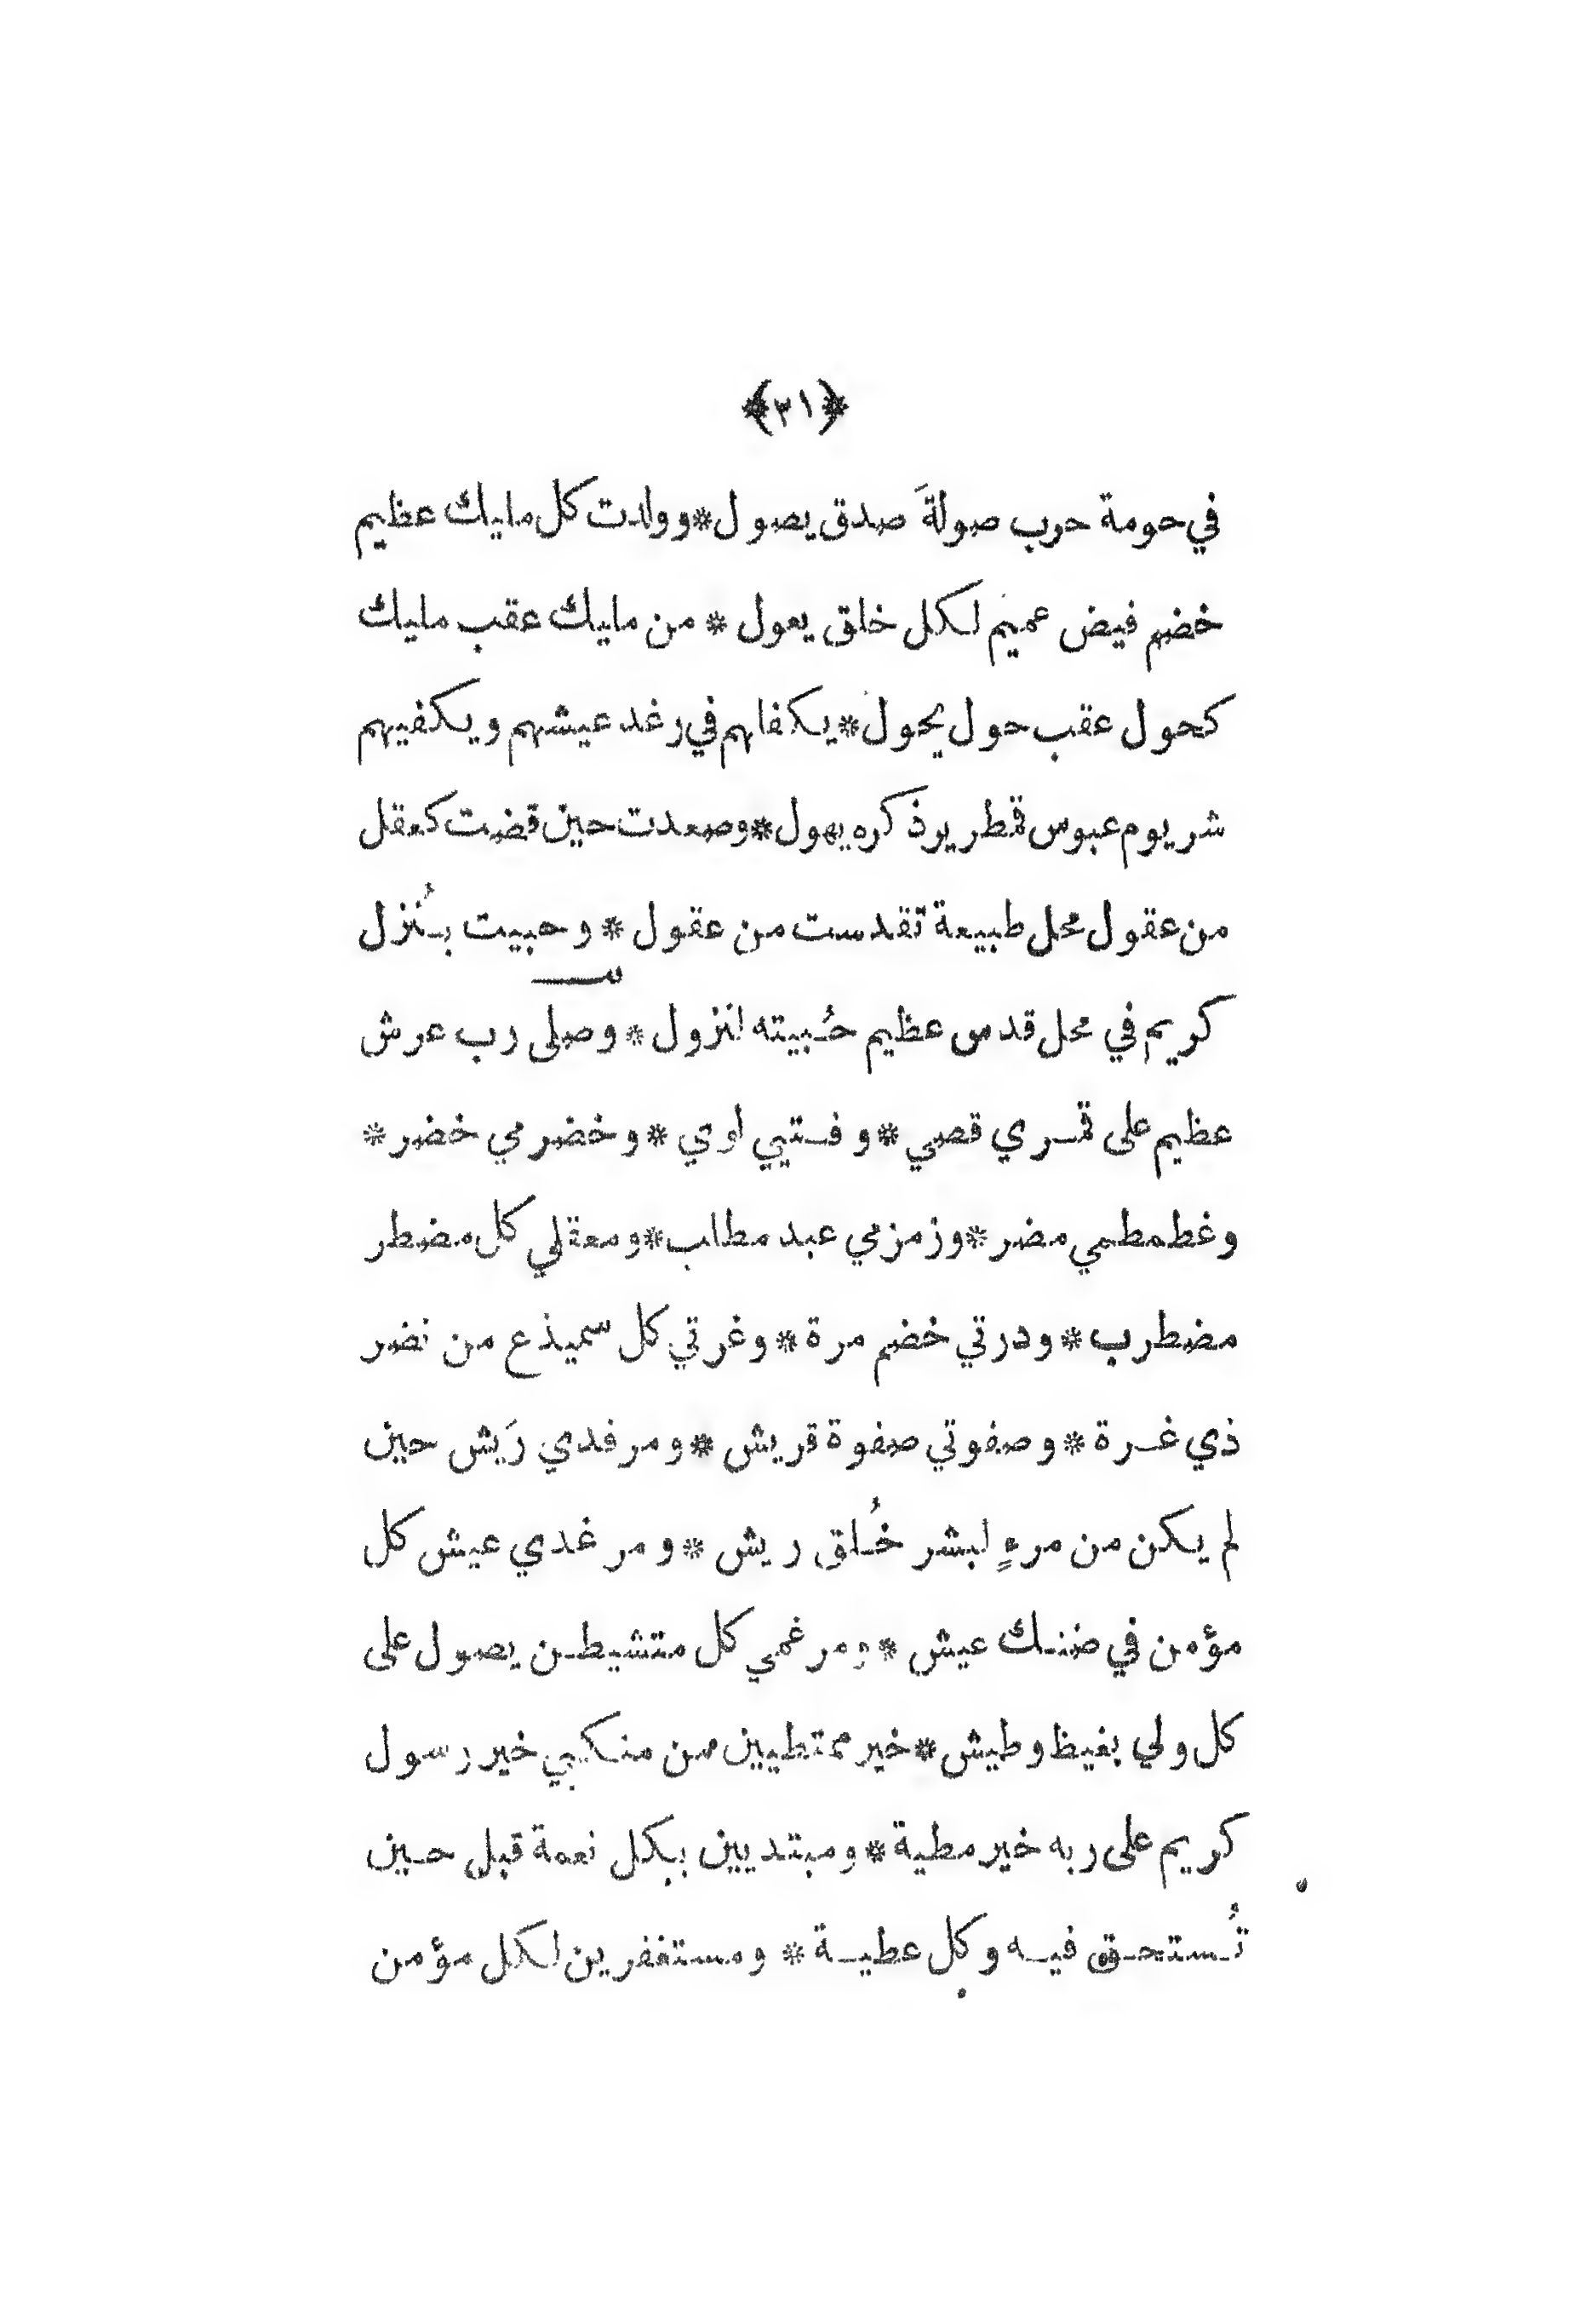 ﴿٢١﴾
في حومة حرب صولةَ صدق يصول * وولدت كل مليك عظيم
خضم فيض عميم لكل خلق يعول * من مليك عقب مليك
كحول عقب حول يحول * يكفلهم في رغد عيشهم ويكفيهم
شر يوم عبوس قمطرير ذكره يهول * وصعدت حين قضت كعقل
من عقول محل طبيعة تقدست من عقول * وحبيت بنُزل
كريم في محل قدس عظيم حُبيته لنزول * وصلى رب عرش
عظيم على قمري قصي * وفتيي لوي * وخضرمي خضر *
وغطمطمي مضر * وزمزمي عبد مطلب * ومعقلي كل مضطر
مضطرب * ودرتي خضم مرة * وغرتي كل سميذع من نضر
ذي غرة * وصفوتي صفوة قريش * ومرفدي رَيش حين
لم يكن من مرءٍ لبشر خُلق ريش * ومرغدي عيش كل
مؤمن في ضنك عيش * ومرغمي كل متشيطن يصول على
كل ولي بغيظ وطيش * خير ممتطيين من منكبي خير رسول
كريم على ربه خير مطية * ومبتديين بكل نعمة قبل حين
تُستحق فيه وكل عطية * ومستغفرين لكل مؤمن